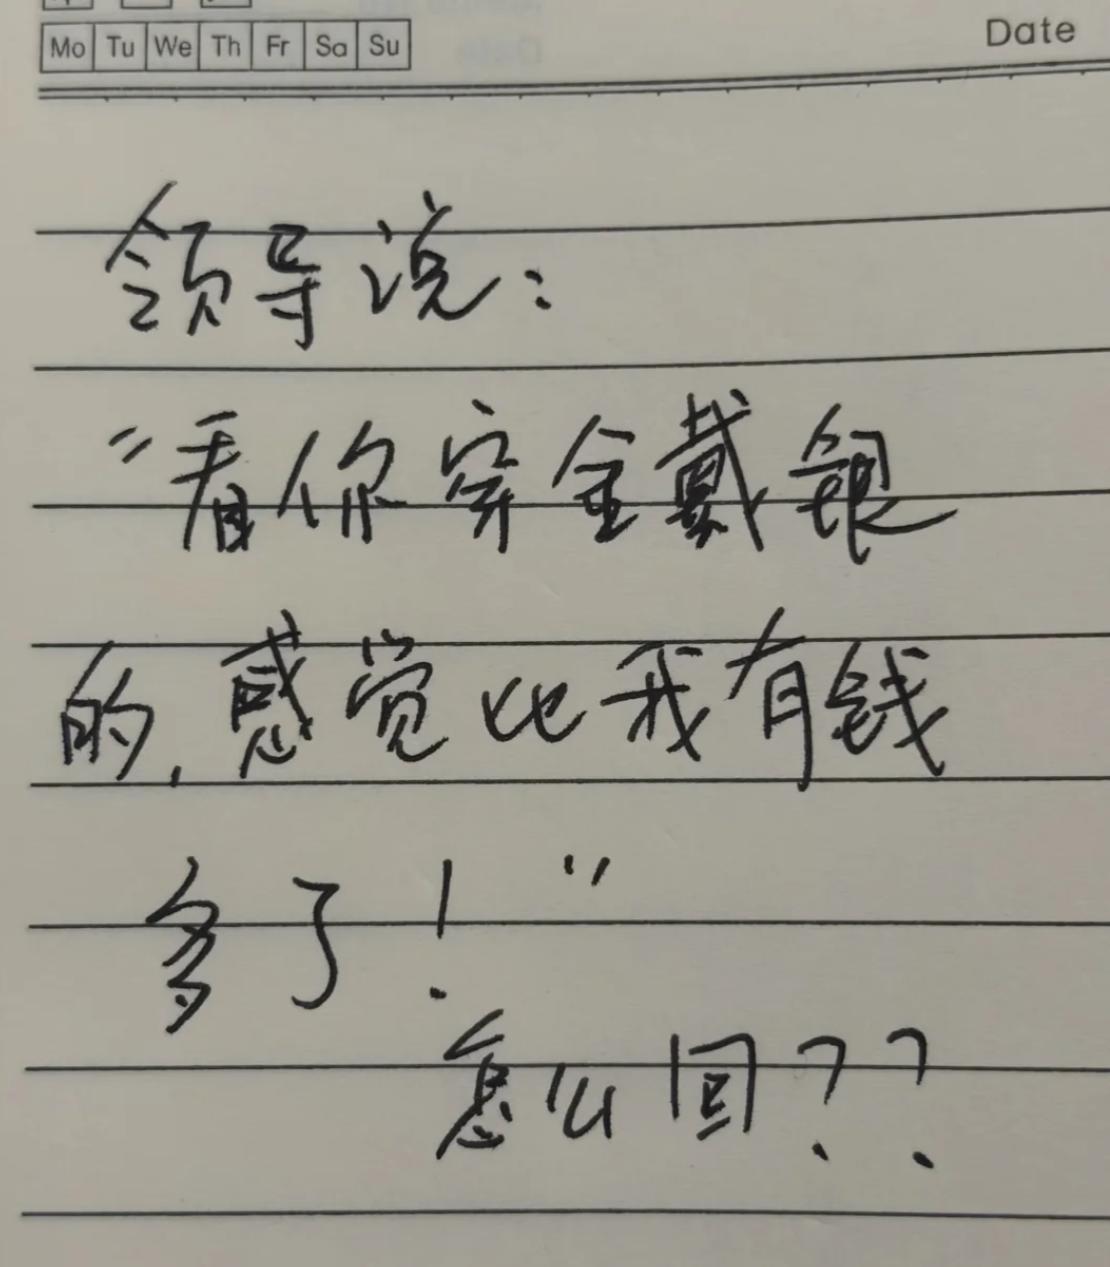 Mo Tu We Th Fr Sa Su
Date
领导说:
"看你穿金戴银
的,感觉比我有钱
多了!"
怎么回??